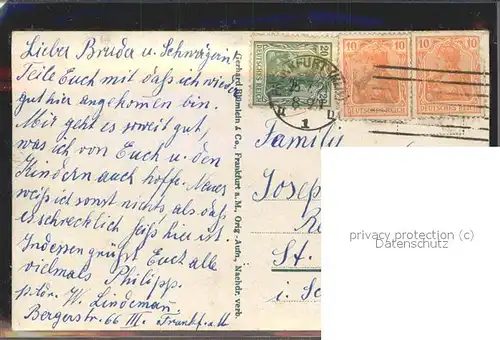 Lieber Bruder u. Schwägerin
Teile Euch mit daß ich wieder
gut hier angekomen bin.
Mir geht es soweit gut,
was ich von Euch u. den
Kindern auch hoffe. Neues
weiß ich sonst nichts, als daß
es schrecklich heiß hier ist.
Indessen grüßt Euch alle
vielmals Philipp.
W. Lindeman.
Bergerstr. 66 III. Frankf. a. M
Gerhard Blümlein & Co., Frankfurt a. M. Orig.-Aufn. Nachdr. verb.
20
10
10
DEUTSCHES REICH
DEUTSCHES REICH
FRANKFURT
1
Familie
Josep
St.
privacy protection (c)
Datenschutz